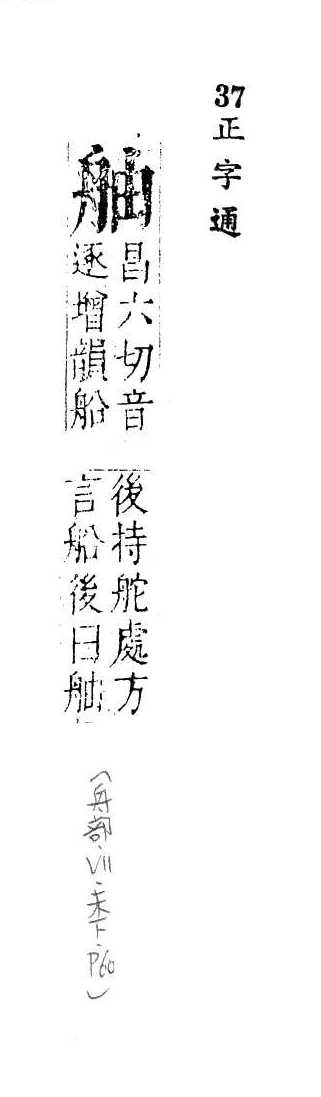 37 正字通
舳
昌六切音
逐增韻船
後持舵處方
言船後曰舳
(舟部、VII、未下、P60)